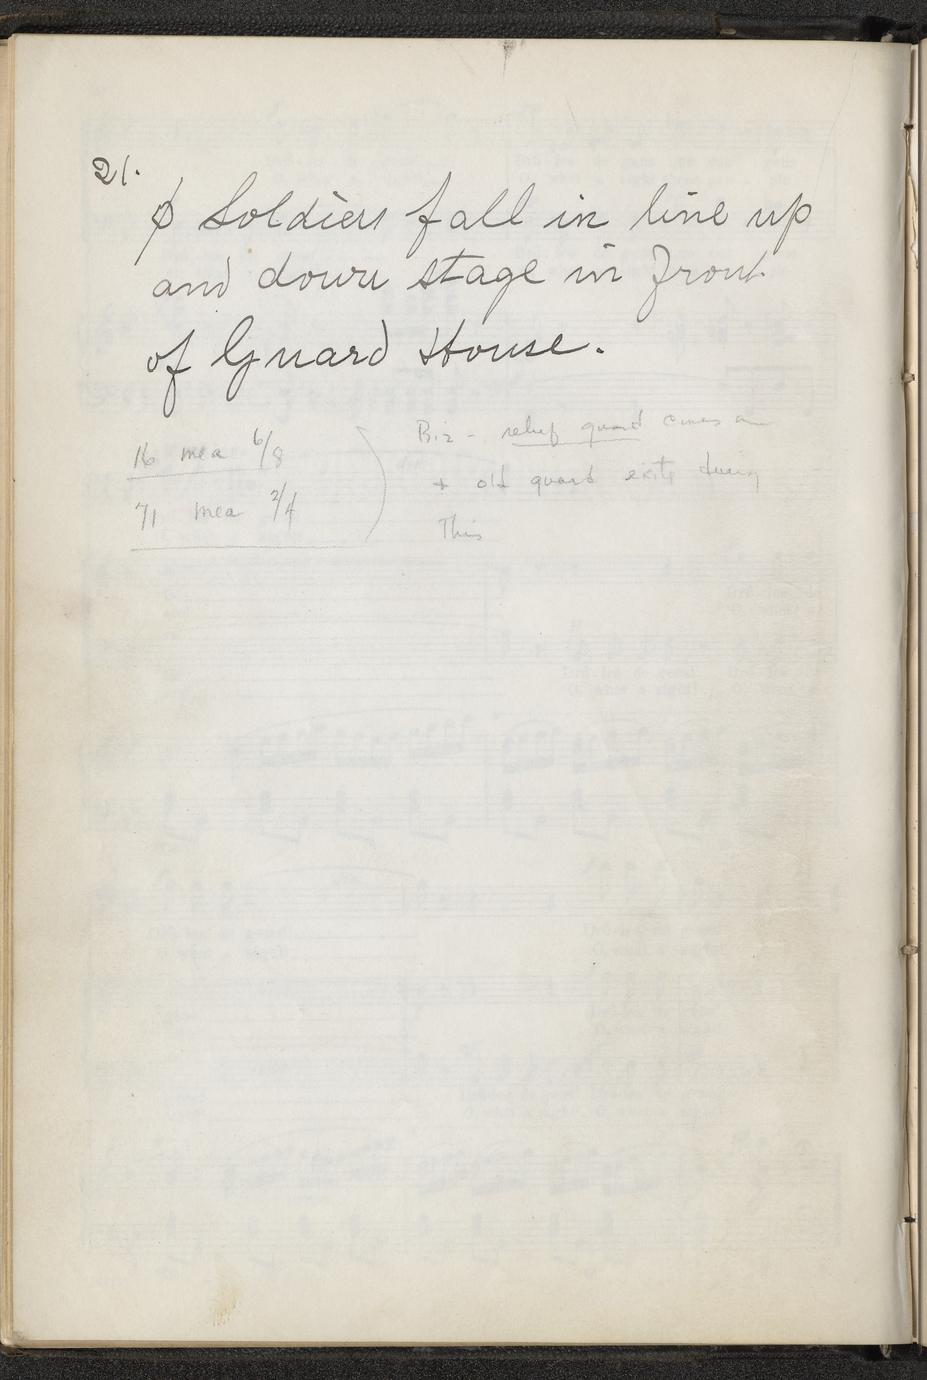 21.
φ Soldiers fall in line up
and down stage in front
of Guard House.
16 mea 6/8
71 mea 2/4
Biz - relief guard comes on
+ old guard exits during
This